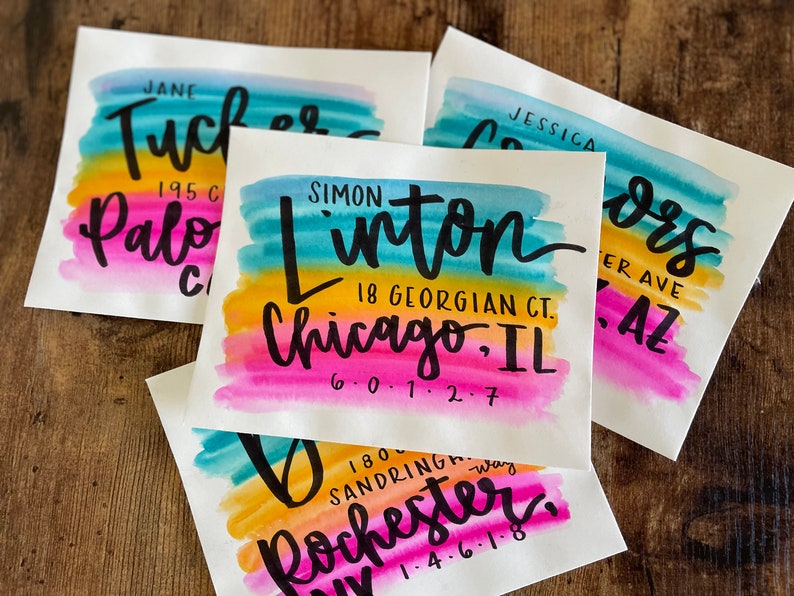 JANE
Tucker
195 C
Palo
JESSICA
ors
TER AVE
, AZ
SIMON
Linton
18 GEORGIAN CT.
Chicago, IL
6·0·1·2·7
180
SANDRINGHAM way
Rochester,
NY 1·4·6·1·8